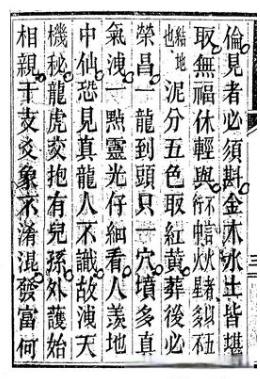 倫見者必須斟金木水土皆堪
取無福休輕與
地也泥分五色取紅黃葬後必
榮昌一龍到頭只一穴墳多真
氣洩一點靈光仔細看人羡地
中仙恐見真龍人不識故洩天
機秘龍虎交抱有兒孫外護始
相親干支爻象不淆混發富何